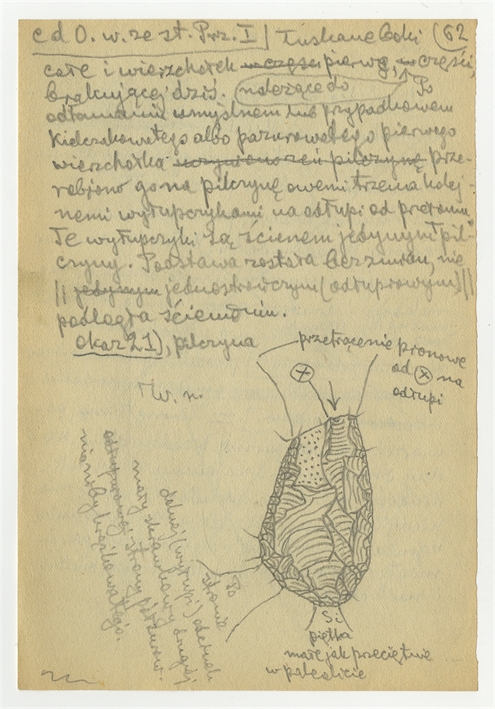 c d O. w. ze st. Prz. I | Łuskane boki (62
całe i wierzchołek w części pierwę, w części,
brakującej dziś. należące do Po
odłamaniu umyślnem lub przypadkowem
Kielczakowatego albo pazurowatego pierwego
wierzchołka prze-
robiono go na pilczynę owemi trzema kolej-
nemi wyłupczykami na odłupi od
Te wyłupczyki są ścienem jedynym pil-
czyny. Podstawa została bez zmian, nie
|| jedynym jednostronczym (odłupowym) ||
podległa ścienionin.
Okaz 21), pilczyna
przetrącenie pronowe
od ⊗ na
odłupi
W. n.
Po
stronie
dolnej (wyłupi) odcinek
mały skrawkowy drugiej
odłupowej strony
Si
piętka
małe jak przeciętnie
w paleolicie